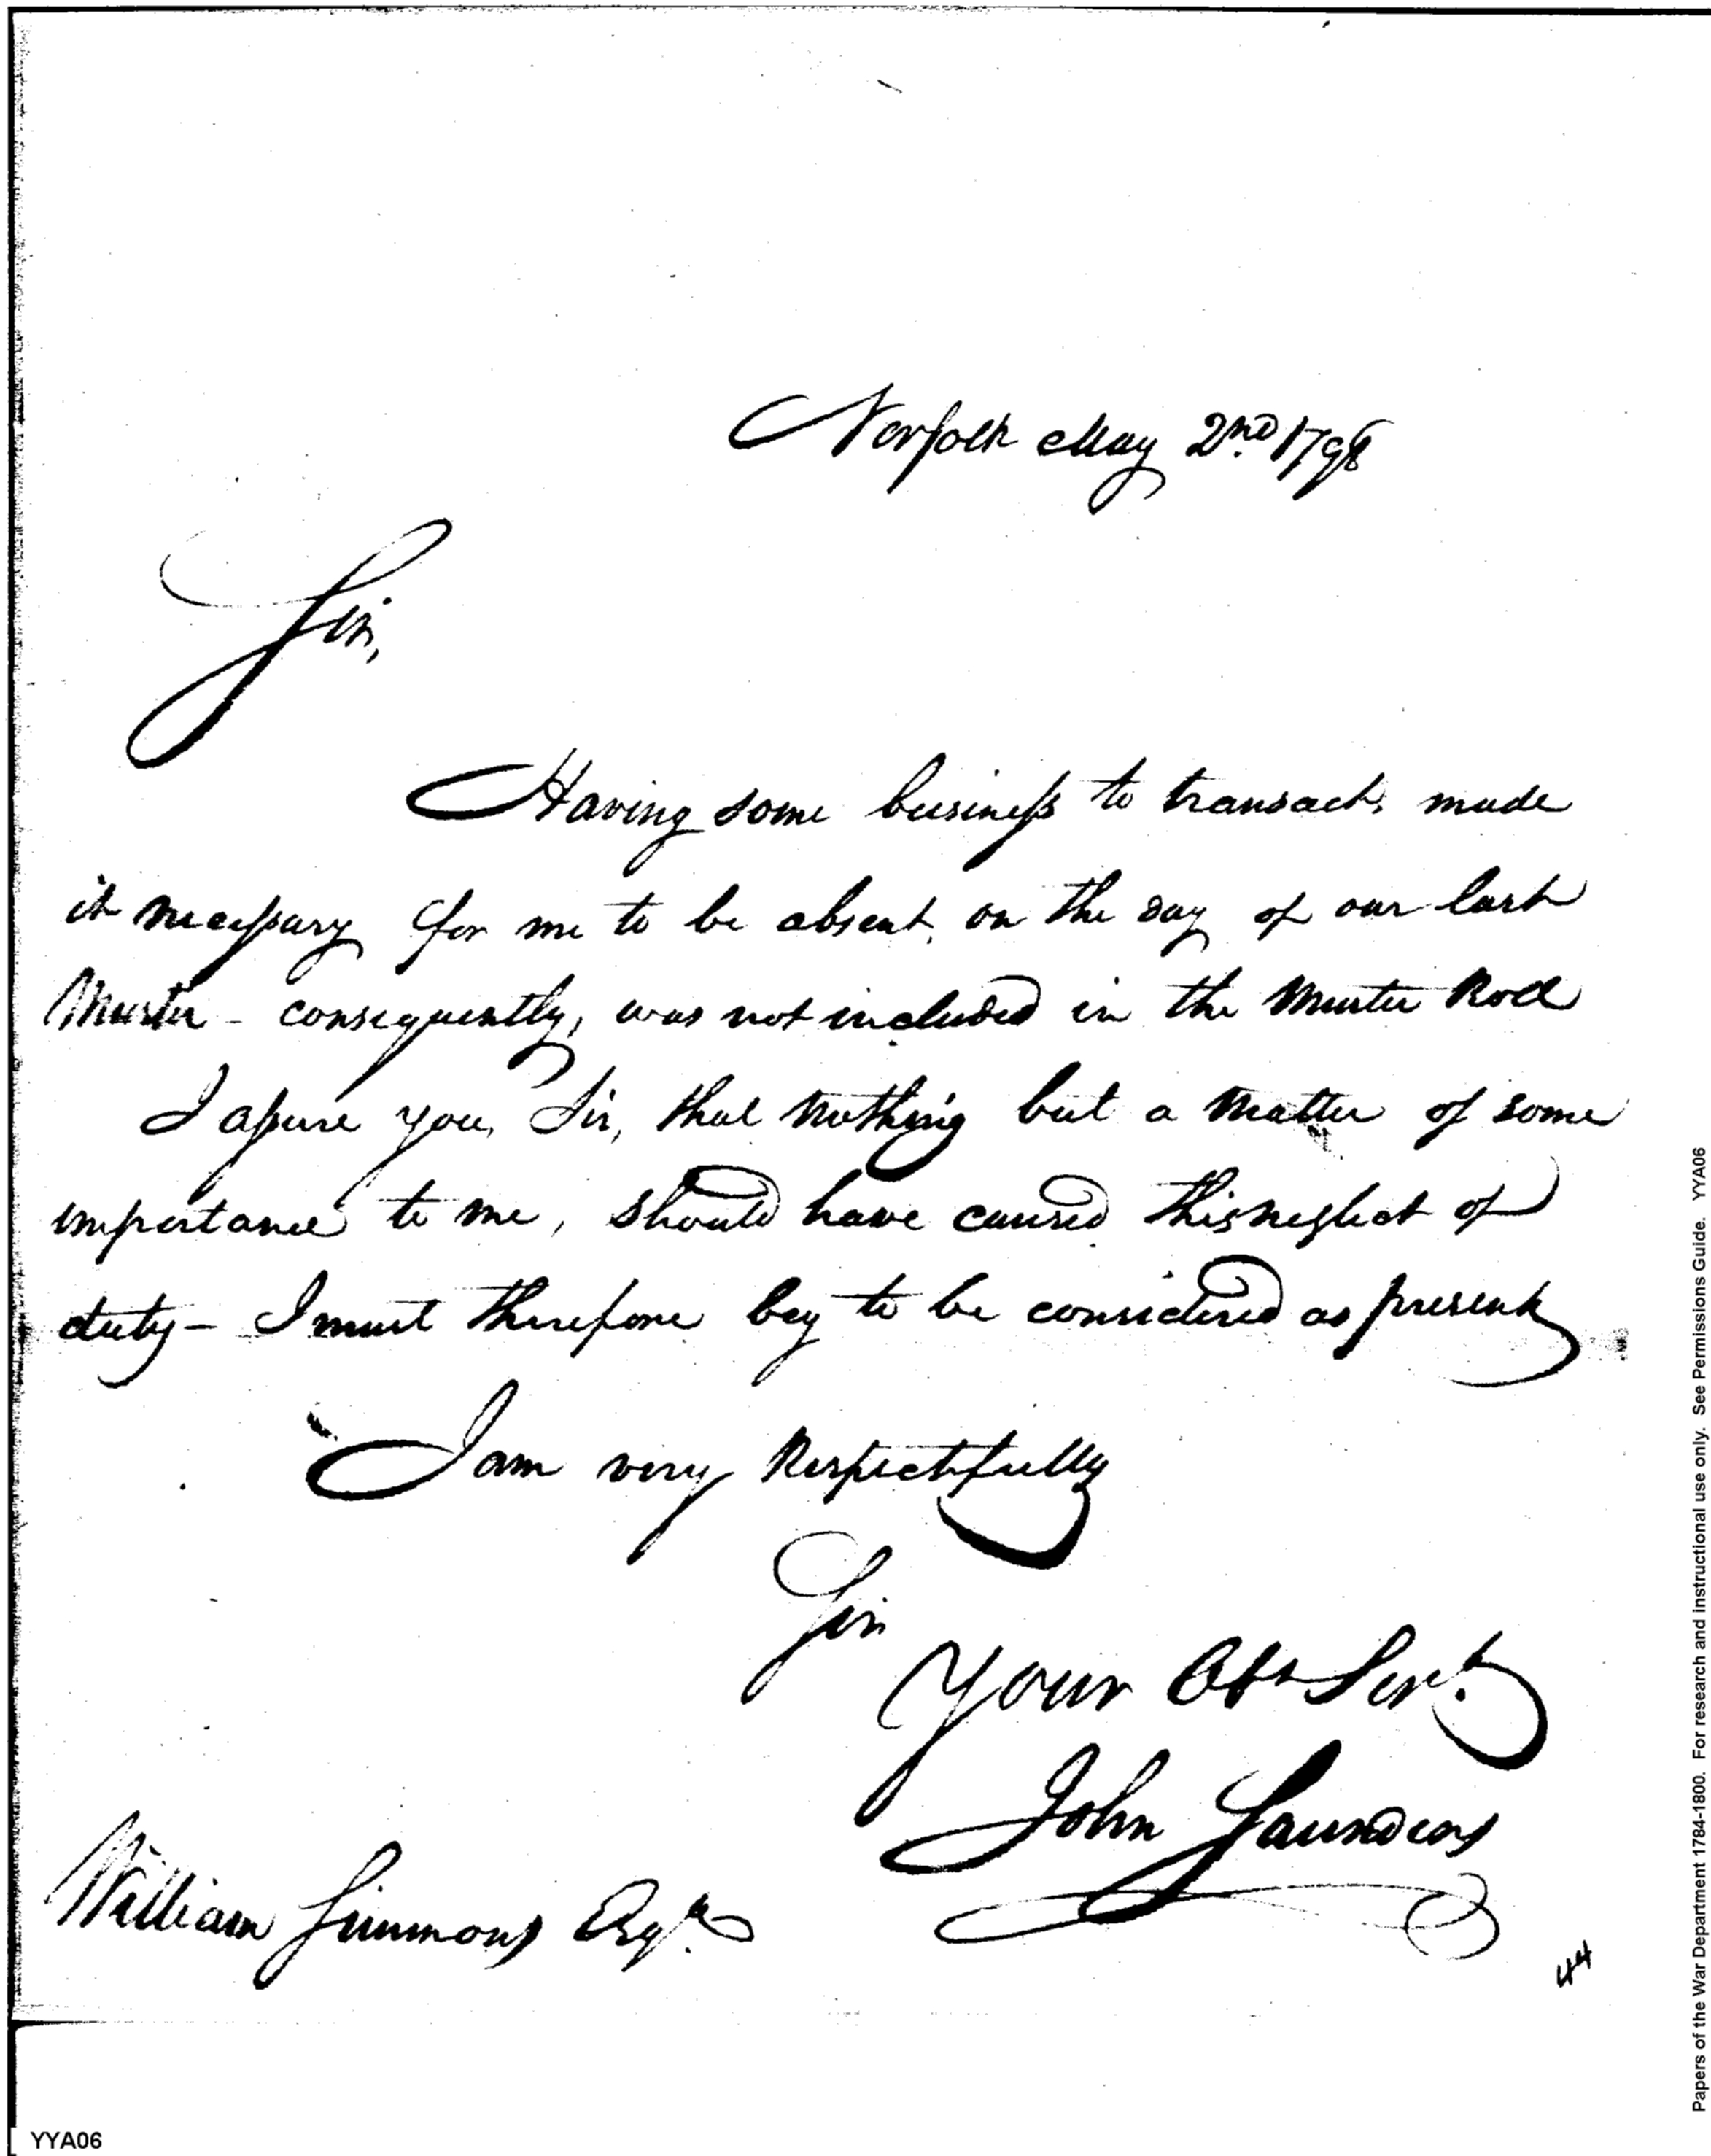 Norfolk May 2nd. 1798
Sir,
Having some business to transact, made
it necessary for me to be absent, on the day of our last
Muster - consequently, was not included in the Muster Roll
I assure you, Sir, that nothing but a matter of some
importance to me, should have caused this neglect of
duty - I must therefore beg to be considered as present
I am very Respectfully
Sir
Your Obt Servt.
John Saunders
William Simmons Esqr.
44
YYA06
Papers of the War Department 1784-1800. For research and instructional use only. See Permissions Guide. YYA06